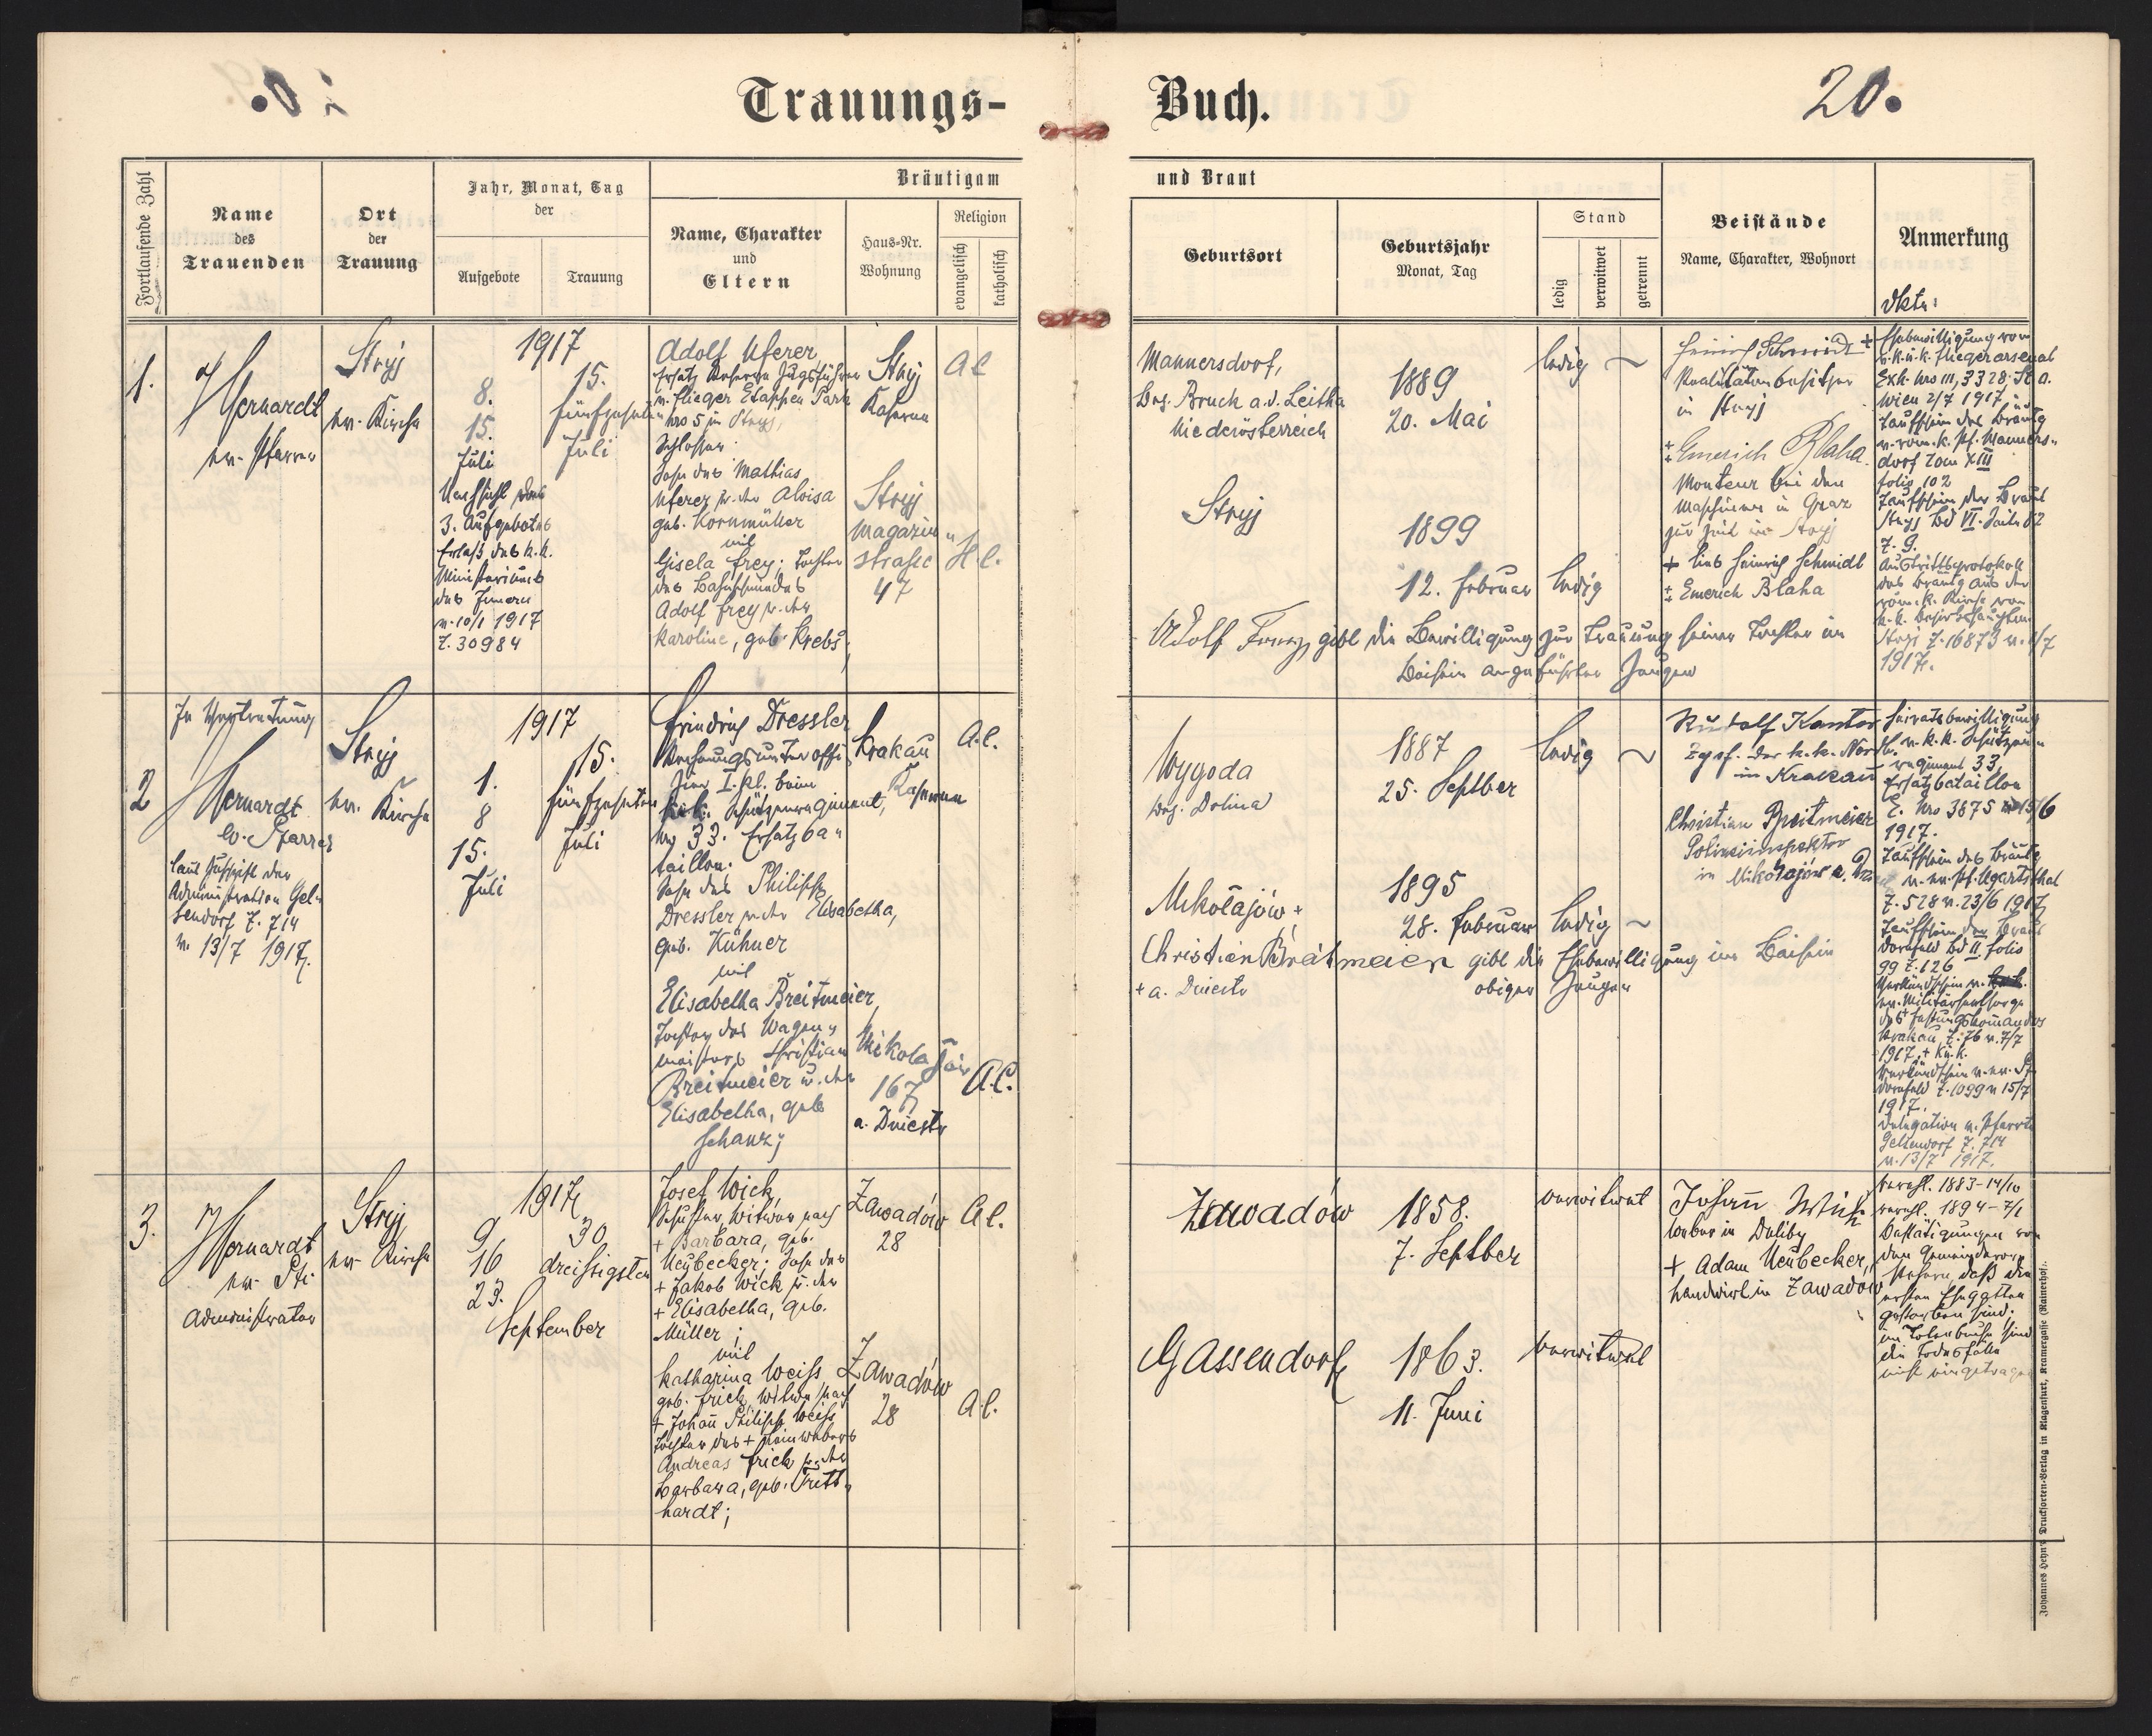 Trauungs-
Buch.
20.
Fortlaufende Zahl
Name
des
Trauenden
Ort
der
Trauung
Jahr, Monat, Tag
der
Aufgebote
Trauung
Bräutigam
Name, Charakter
und
Eltern
Haus-Nr.
Wohnung
Religion
evangelisch
katholisch
und Braut
Geburtsort
Geburtsjahr
Monat, Tag
Stand
ledig
verwitwet
getrennt
Beistände
Name, Charakter, Wohnort
Anmerkung
1.
ev. Pfarrer
Stryj
ev. Kirche
1917
8.
15.
Juli
Nachsicht des
3. Aufgebotes
Erlaß des k.k.
Ministeriums
des Innern
v. 10/1 1917
Z. 30984
15.
fünfzehnten
Juli
Adolf Uferer
Ersatz Reserve Zugsführer
v. Flieger Etappen Park
Nro 5 in Stryj,
Schlosser
Sohn des Mathias
Uferer u. der Aloisa
geb. Kornmüller
mit
Gisela Frey; Tochter
des
Adolf Frey u. der
Karoline, geb. Krebs;
Stryj
Kaserne
Stryj
Magazin
strasse
47
A C
H. C.
Mannersdorf,
Bez. Bruck a.d. Leitha
Niederösterreich
Stryj
1889
20. Mai
1899
12. Februar
ledig
ledig
Heinrich Schmidt +
Realitätenbesitzer
in Stryj
Emerich Blaha
Monteur bei den
Maschinen in Graz
zur Zeit in Stryj
+ lies Heinrich Schmidt
Emerich Blaha
Adolf Frey gibt die Bewilligung zur Trauung seiner Tochter im
Beisein angeführter Zeugen
Ehebewilligung vom
k.u.k. Fliegerarsenal
Exh. Nro III, 3328: St. a.
Wien 2/7 1917
Taufschein des Bräutig
v. röm. k. Pf. Manners-
dorf Tom XIII
folio 102
Taufschein der Braut
Stryj Bd VI. Seite 82
Z. 9.
Austrittsprotokoll
des Bräutig aus der
röm. k. Kirche von
k.k. Bezirkshauptm
Stryj Z. 16873 v. /7
1917.
2
In Vertretung
ev. Pfarrer
laut Zuschrift der
Administration Gel-
sendorf Z. 714
v. 13/7 1917.
Stryj
ev. Kirche
1917
1.
8
15.
Juli
15.
fünfzehnten
Juli
Friedrich Dressler
Rechnungsunteroffi
zier I. Kl. beim
k.k. Schützenregiment,
Nro 33. Ersatzba-
taillon.
Sohn des Philipp
Dressler u. der Elisabetha,
geb. Kühner
mit
Elisabetha Breitmeier,
Tochter des Wagen-
meisters Christian
Breitmeier u. der
Elisabetha, geb
Schanz;
Krakau
Kaserne
Mikolajów
167
a. Dniestr
A.C.
A.C.
Wygoda
Bez. Dolina
Mikołajów +
+ a. Dniestr
1887
25. Septber
1895
28. Februar
ledig
ledig
Rudolf Kantor
Zgsf. der k.k. Nordb.
in Krakau
Christian Breitmeier
Polizeiinspektor
in Mikołajów a. D.
Christian Breitmeier gibt die Ehebewilligung im Beisein
obiger Zeugen
Heiratsbewilligung
v. k.k. Schützen-
regiment 33,
Ersatzbataillon
E. Nro 3875 v. 15/6
1917.
Taufschein des Bräutig
v. ev. Pf. Ugartsthal
Z. 528 v. 23/6 1917
Taufschein der Braut
Dornfeld Bd II. folio
99 Z. 126
Verkündschein v.
ev. Militärseelsorge
des Festungskommandos
Krakau Z. 76 v. 7/7
1917. + k.u.k.
Verkündschein v. ev. Pf
Dornfeld Z. 1099 v. 15/7
1917.
Delegation v. Pfarrt
Gelsendorf Z. 714
v. 13/7 1917.
3.
ev. Pf.
Administrator
Stryj
ev. Kirche
1917
9
16
23.
September
30.
dreissigsten
Josef Wick,
Schuster, Witwer nach
+ Barbara, geb.
Neubecker; Sohn des
+ Jakob Wick u. der
+ Elisabetha, geb.
Müller;
mit
Katharina Weiss
geb. Frick, Witwe nach
+ Johann Philipp Weiss
Tochter des + Leinwebers
Andreas Frick u. der
Barbara, geb. Tritt-
hardt;
Zawadów
28
Zawadów
28
A C.
A C.
Zawadów
Gassendorf
1858.
7. Septber
1863.
11. Juni
verwitwet
verwitwet
Johann
Weber in Duliby
+ Adam Neubecker,
Landwirt in Zawadów
verehl. 1883-14/10
verehl. 1894-7/1
Bestätigungen von
den Gemeindevor-
stehern, daß die
ersten Ehegatten
gestorben sind.
im Totenbuche sind
die Todesfälle
nicht eingetragen
Johannes Heyn's Drucksorten-Verlag in Klagenfurt, Kramergasse (Rainerhof).